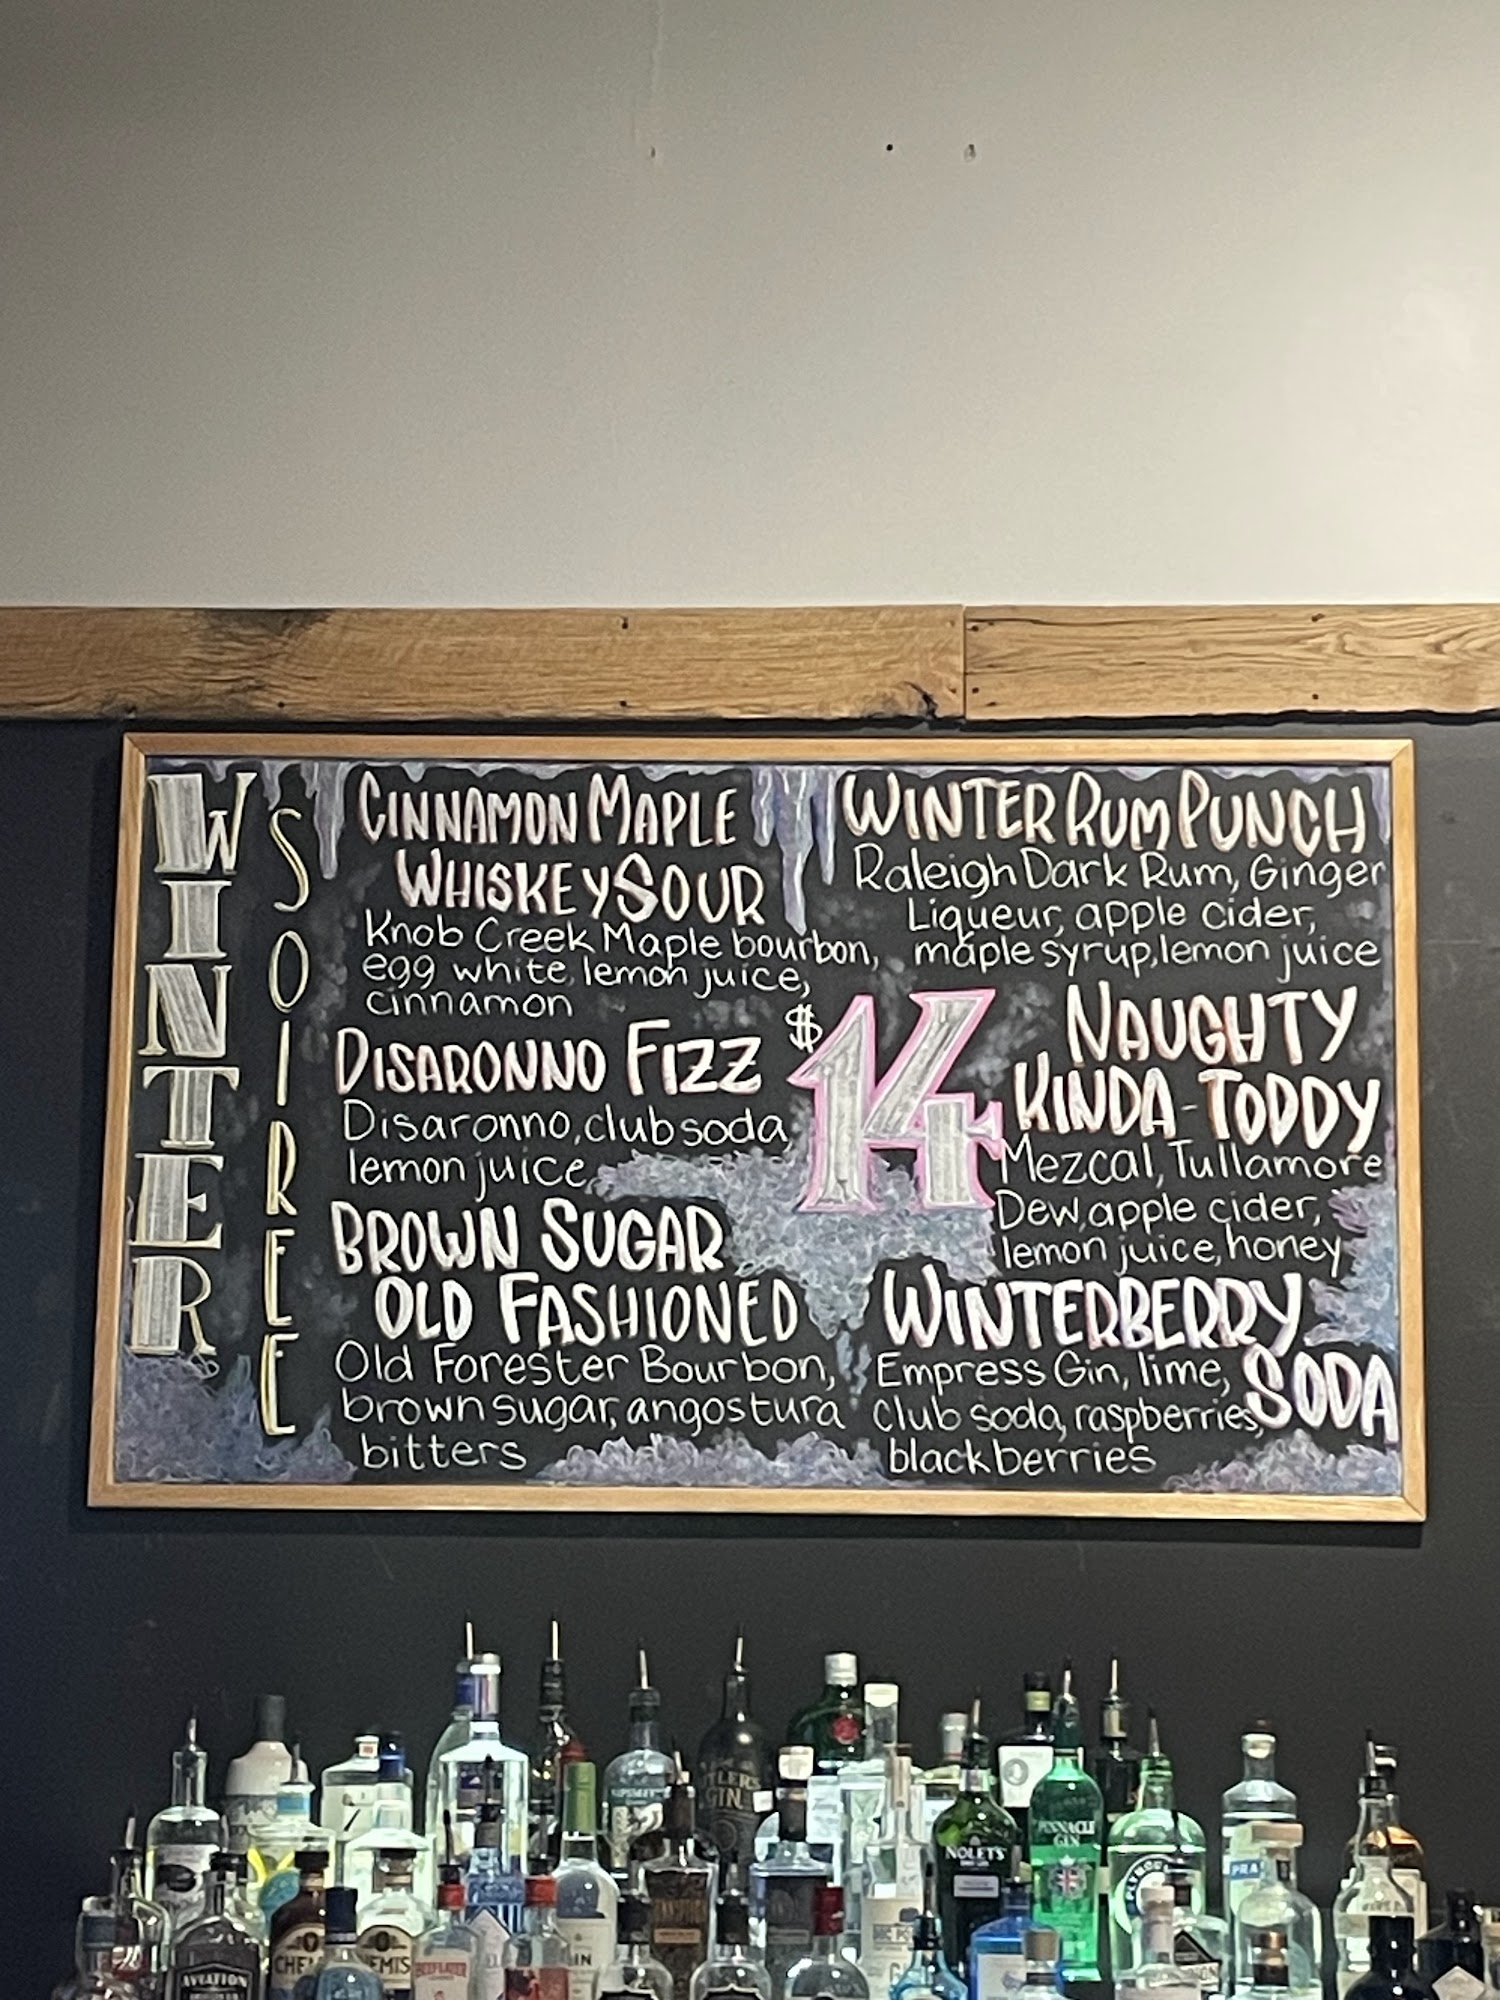 WINTER
SOIREE
CINNAMON MAPLE
WHISKEY SOUR
Knob Creek Maple bourbon,
egg white, lemon juice,
cinnamon
DISARONNO FIZZ
Disaronno, club soda
lemon juice
BROWN SUGAR
OLD FASHIONED
Old Forester Bourbon,
brown sugar, angostura
bitters
$14
WINTER RUM PUNCH
Raleigh Dark Rum, Ginger
Liqueur, apple cider,
maple syrup, lemon juice
NAUGHTY
KINDA-TODDY
Mezcal, Tullamore
Dew, apple cider,
lemon juice, honey
WINTERBERRY
SODA
Empress Gin, lime,
club soda, raspberries,
blackberries
GIN
NOLET'S
PINNACLE
GIN
PLYMOUTH
AVIATION
BEEFEATER